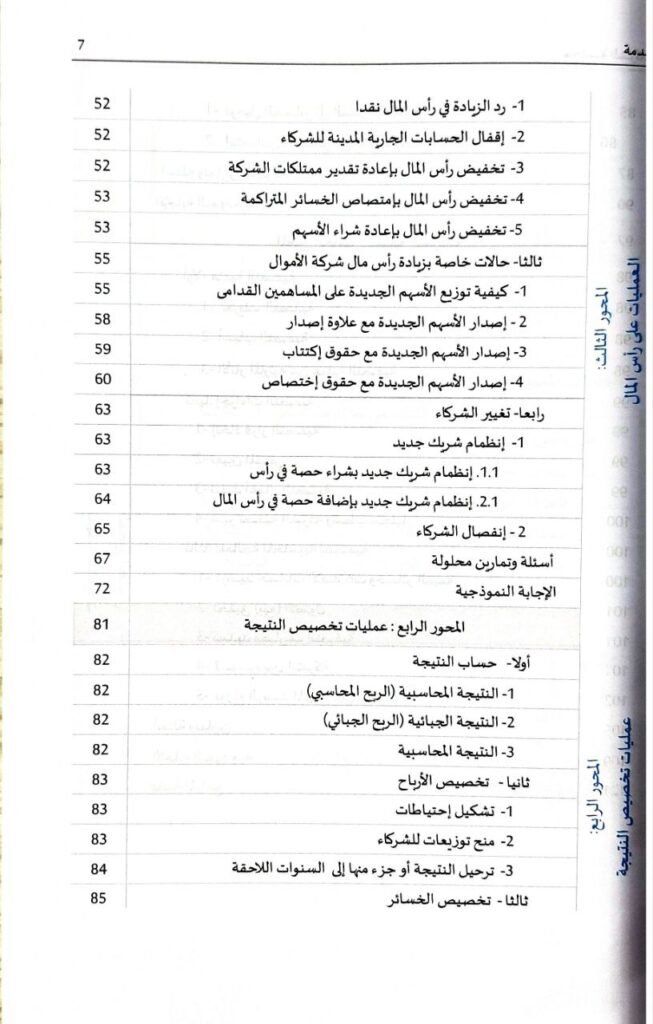 7
1- رد الزيادة في رأس المال نقدا 52
2- إقفال الحسابات الجارية المدينة للشركاء 52
3- تخفيض رأس المال بإعادة تقدير ممتلكات الشركة 52
4- تخفيض رأس المال بإمتصاص الخسائر المتراكمة 53
5- تخفيض رأس المال بإعادة شراء الأسهم 53
ثالثا- حالات خاصة بزيادة رأس مال شركة الأموال 55
1- كيفية توزيع الأسهم الجديدة على المساهمين القدامى 55
2 - إصدار الأسهم الجديدة مع علاوة إصدار 58
3- إصدار الأسهم الجديدة مع حقوق إكتتاب 59
4- إصدار الأسهم الجديدة مع حقوق إختصاص 60
رابعا- تغيير الشركاء 63
1- إنظمام شريك جديد 63
1.1. إنظمام شريك جديد بشراء حصة في رأس 63
2.1. إنظمام شريك جديد بإضافة حصة في رأس المال 64
2 - إنفصال الشركاء 65
أسئلة وتمارين محلولة 67
الإجابة النموذجية 72
المحور الثالث:
العمليات على رأس المال
المحور الرابع: عمليات تخصيص النتيجة 81
أولا- حساب النتيجة 82
1- النتيجة المحاسبية (الربح المحاسبي) 82
2- النتيجة الجبائية (الربح الجبائي) 82
3- النتيجة المحاسبية 82
ثانيا - تخصيص الأرباح 83
1- تشكيل إحتياطات 83
2- منح توزيعات للشركاء 83
3- ترحيل النتيجة أو جزء منها إلى السنوات اللاحقة 84
ثالثا - تخصيص الخسائر 85
المحور الرابع:
عمليات تخصيص النتيجة